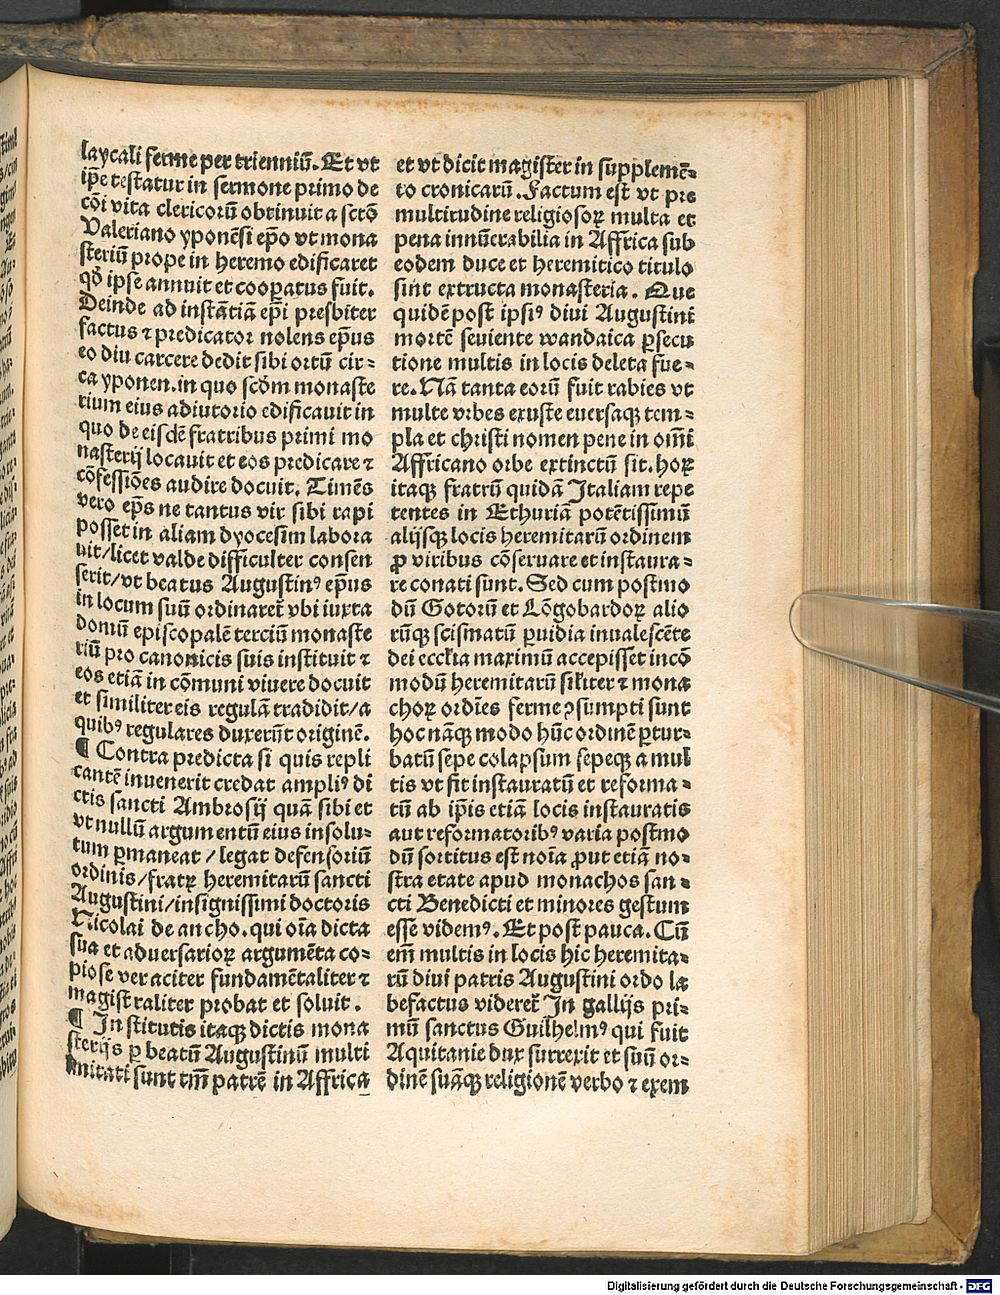 laycali ferme per trienniū. Et vt
ip̄e testatur in sermone primo de
cōi vita clericorū obtinuit a sctō
Valeriano yponēsi ep̄o vt mona
steriū prope in heremo edificaret
qd̄ ipse annuit et cooꝑatus fuit.
Deinde ad instātiā ep̄i presbiter
factus ⁊ predicator nolens ep̄us
eo diu carcere dedit sibi ortū cir⸗
ca yponen. in quo scd̄m monaste
rium eius adiutorio edificauit in
quo de eisdē fratribus primi mo
nasterij locauit et eos predicare ⁊
cōfessiōes audire docuit. Timēs
vero ep̄s ne tantus vir sibi rapi
posset in aliam dyocesim labora
uit/licet valde difficulter consen
serit/vt beatus Augustinꝰ ep̄us
in locum suū ordinaret̄ vbi iuxta
domū episcopalē tercium monaste
riū pro canonicis suis instituit ⁊
eos etiā in cōmuni viuere docuit
et similiter eis regulā tradidit/a
quibꝰ regulares duxerūt originē.
¶ Contra predicta si quis repli
cantē inuenerit credat ampliꝰ di
ctis sancti Ambrosij quā sibi et
vt nullū argumentū eius insolu⸗
tum ꝑmaneat/legat defensoriū
ordinis/fratꝝ heremitarū sancti
Augustini/insignissimi doctoris
Nicolai de ancho. qui oīa dicta
sua et aduersarioꝝ argumēta co⸗
piose veraciter fundamētaliter ⁊
magistraliter probat et soluit.
¶ Institutis itaqꝫ dictis mona
sterijs ꝑ beatū Augustinū multi
imitati sunt tm̄ patrē in Affrica
et vt dicit magister in supplemē⸗
to cronicarū. Factum est vt pre
multitudine religiosoꝝ multa et
pena innūerabilia in Affrica sub
eodem duce et heremitico titulo
sint extructa monasteria. Que
quidē post ipsiꝰ diui Augustini
mortē seuiente wandaica ꝑsecu
tione multis in locis deleta fue⸗
re. Nā tanta eorū fuit rabies vt
multe vrbes exuste euersaqꝫ tem⸗
pla et christi nomen pene in om̄i
Affricano orbe extinctū sit. hoꝝ
itaqꝫ fratrū quidā Italiam repe
tentes in Ethuriā potētissimū
alijsqꝫ locis heremitarū ordinem
ꝓ viribus cōseruare et instaura⸗
re conati sunt. Sed cum postmo
dū Gotorū et Lōgobardoꝝ alio
rūqꝫ scismatū ꝑuidia inualescēte
dei ecclīa maximū accepisset incō
modū heremitarū silīter ⁊ mona
choꝝ ordīes ferme ꝯsumpti sunt
hoc nāqꝫ modo hūc ordinē ꝑtur⸗
batū sepe colapsum sepeqꝫ a mul
tis vt sit instauratū et reforma⸗
tū ab ip̄is etiā locis instauratis
aut reformatoribꝰ varia postmo
dū sortitus est noīa ꝓut etiā no⸗
stra etate apud monachos san⸗
cti Benedicti et minores gestum
esse videmꝰ. Et post pauca. Cū
em̄ multis in locis hic heremita⸗
rū diui patris Augustini ordo la
befactus videret̄ In gallijs pri⸗
mū sanctus Guilhelmꝰ qui fuit
Aquitanie dux surrexit et suū or⸗
dinē suāqꝫ religionē verbo ⁊ exem
Digitalisierung gefördert durch die Deutsche Forschungsgemeinschaft - DFG